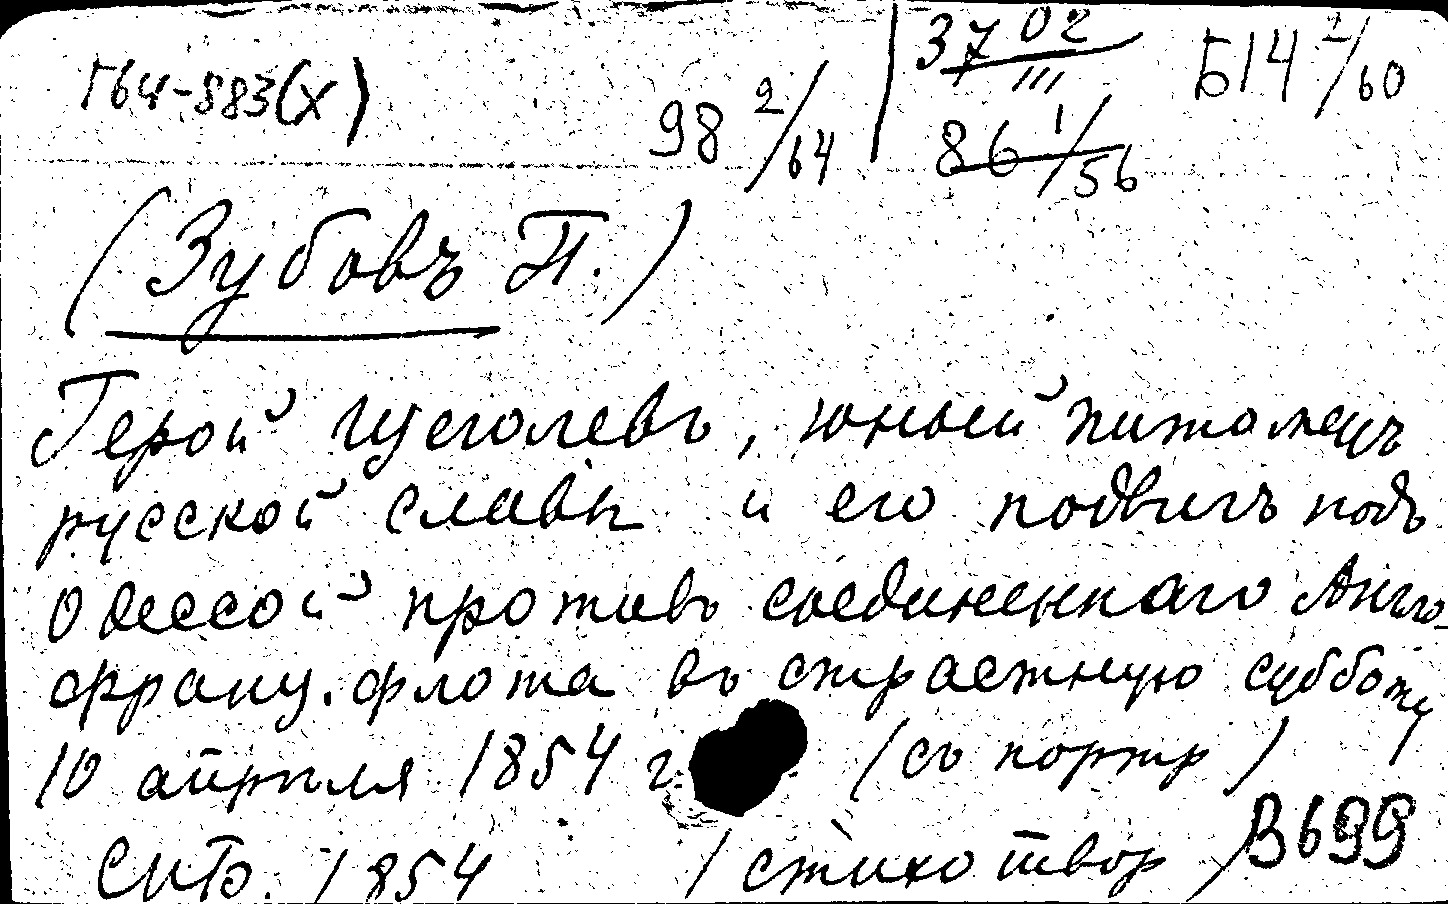 Г64-883(х)
98 2/64
3702
III
Б14 2/60
86 1/56
(Зубовъ П.)
Герой Щеголевъ, юный питомецъ
русской славы и его подвигъ подъ
Одессой противъ соединеннаго Англо-
франц. флота въ страстную субботу
10 апрѣля 1854 г (съ портр)
СПБ. 1854 (стихотвор)
В699